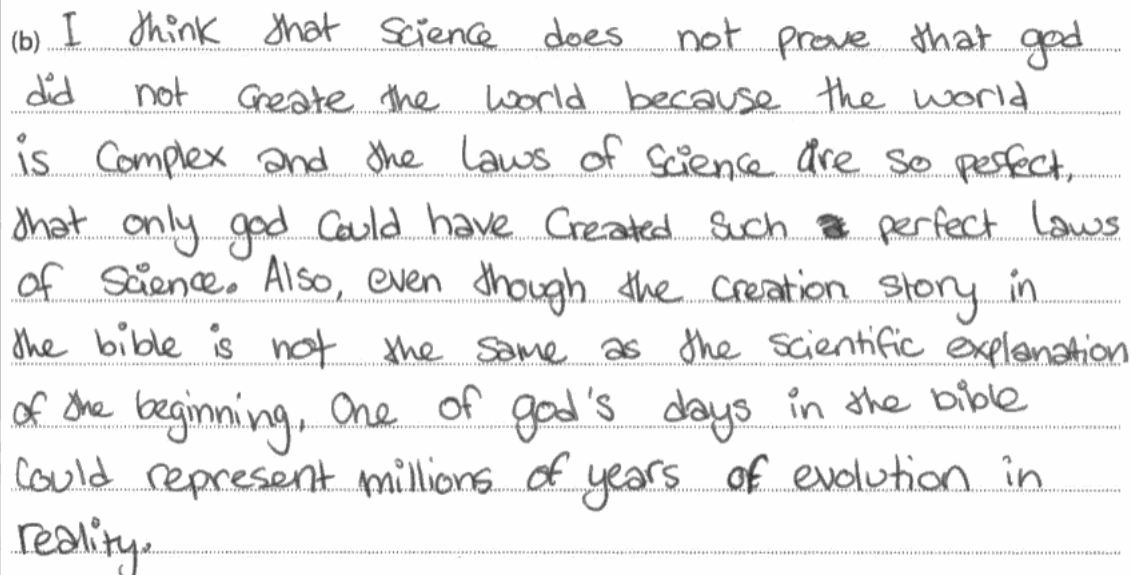 (b) I think that science does not prove that god
did not create the world because the world
is complex and the laws of science are so perfect,
that only god could have created such perfect laws
of science. Also, even though the creation story in
the bible is not the same as the scientific explanation
of the beginning, one of god's days in the bible
could represent millions of years of evolution in
reality.